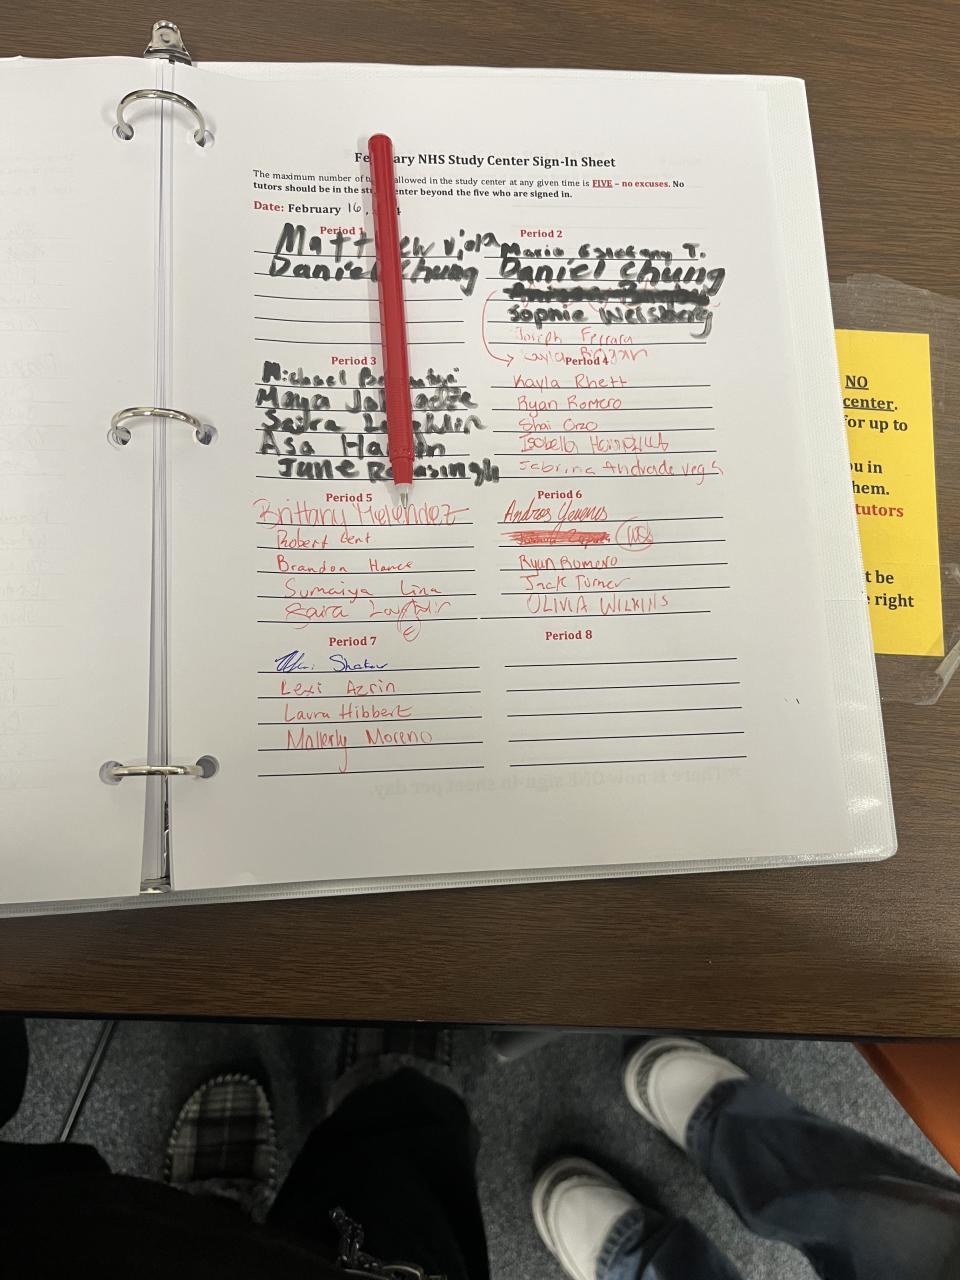 Fe ary NHS Study Center Sign-In Sheet
The maximum number of t allowed in the study center at any given time is FIVE – no excuses. No
tutors should be in the stu enter beyond the five who are signed in.
Date: February 16, 4
Period 1
Matt ew Viola
Daniel Chung
Period 2
Mario T.
Daniel Chung
Sophie Weisberg
Joseph Ferrara
Kayla
Period 3
Michael
Maya
Saira
Asa Ha n
June
Period 4
Kayla Rhett
Ryan Romero
Shai Orzo
Isobella
Sabrina Andrade Vega
Period 5
Brittany Melendez
Robert Dent
Brandon Hance
Sumaiya Lina
Saira
Period 6
Andres
Ryan Romero
Jack Turner
OLIVIA WILKINS
Period 7
Lexi Azrin
Laura Hibbert
Mallerly Moreno
Period 8
*There is now ONE sign-in sheet per day.
NO
center.
for up to
u in
hem.
tutors
t be
e right